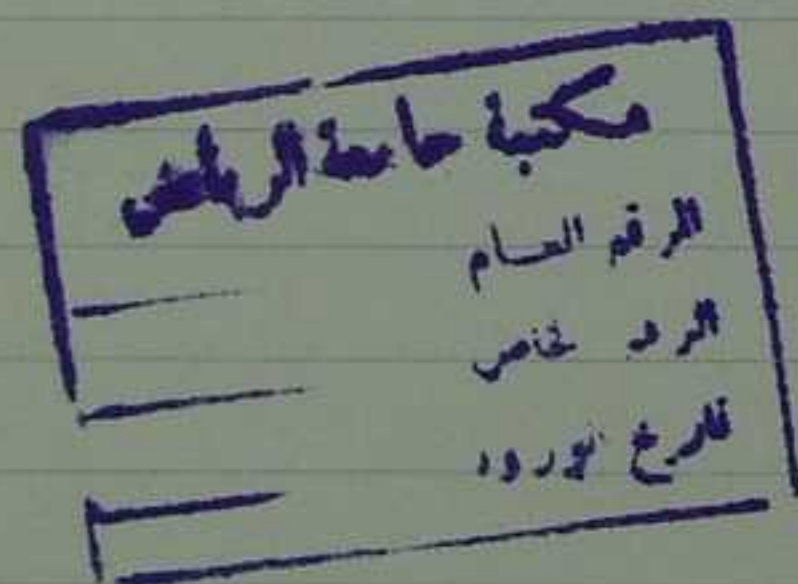 مكتبة جامعة الرياض
الرقم العام
الرقم الخاص
تاريخ الورود